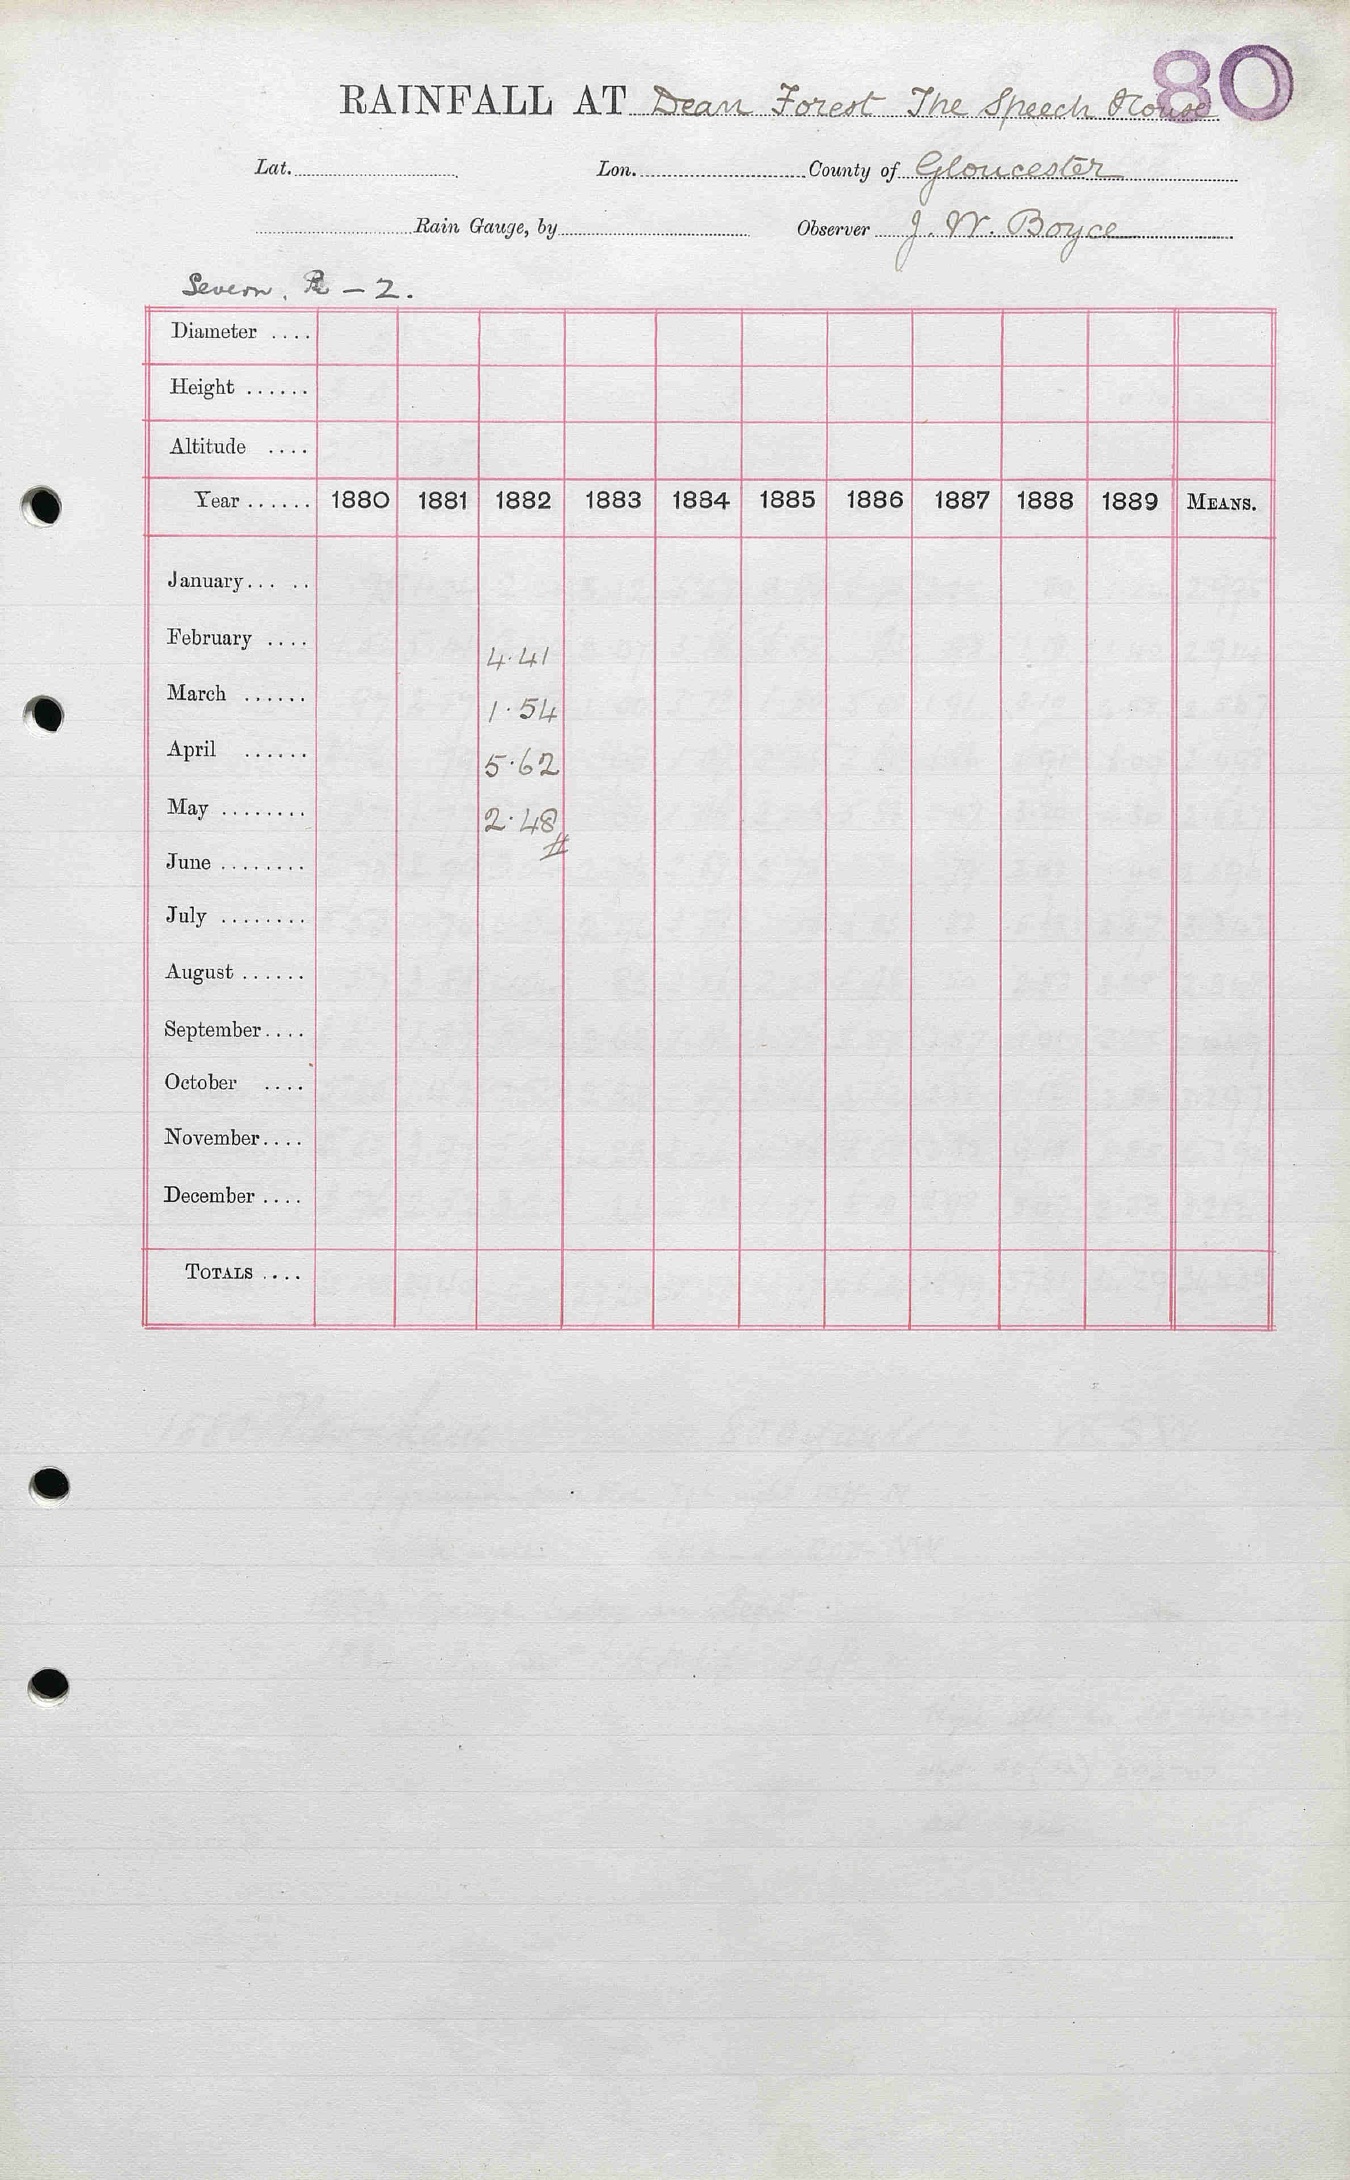 80
RAINFALL AT Dean Forest The Speech House
Lat. Lon. County of Gloucester
Rain Gauge, by Observer J. W. Boyce
Severn. R – 2.
Diameter ....
Height ......
Altitude ....
Year ...... 1880 1881 1882 1883 1884 1885 1886 1887 1888 1889 MEANS.
January... ..
February .... 4.41
March ...... 1.54
April ...... 5.62
May ........ 2.48
June ........
July ........
August ......
September....
October ....
November....
December ....
TOTALS ....